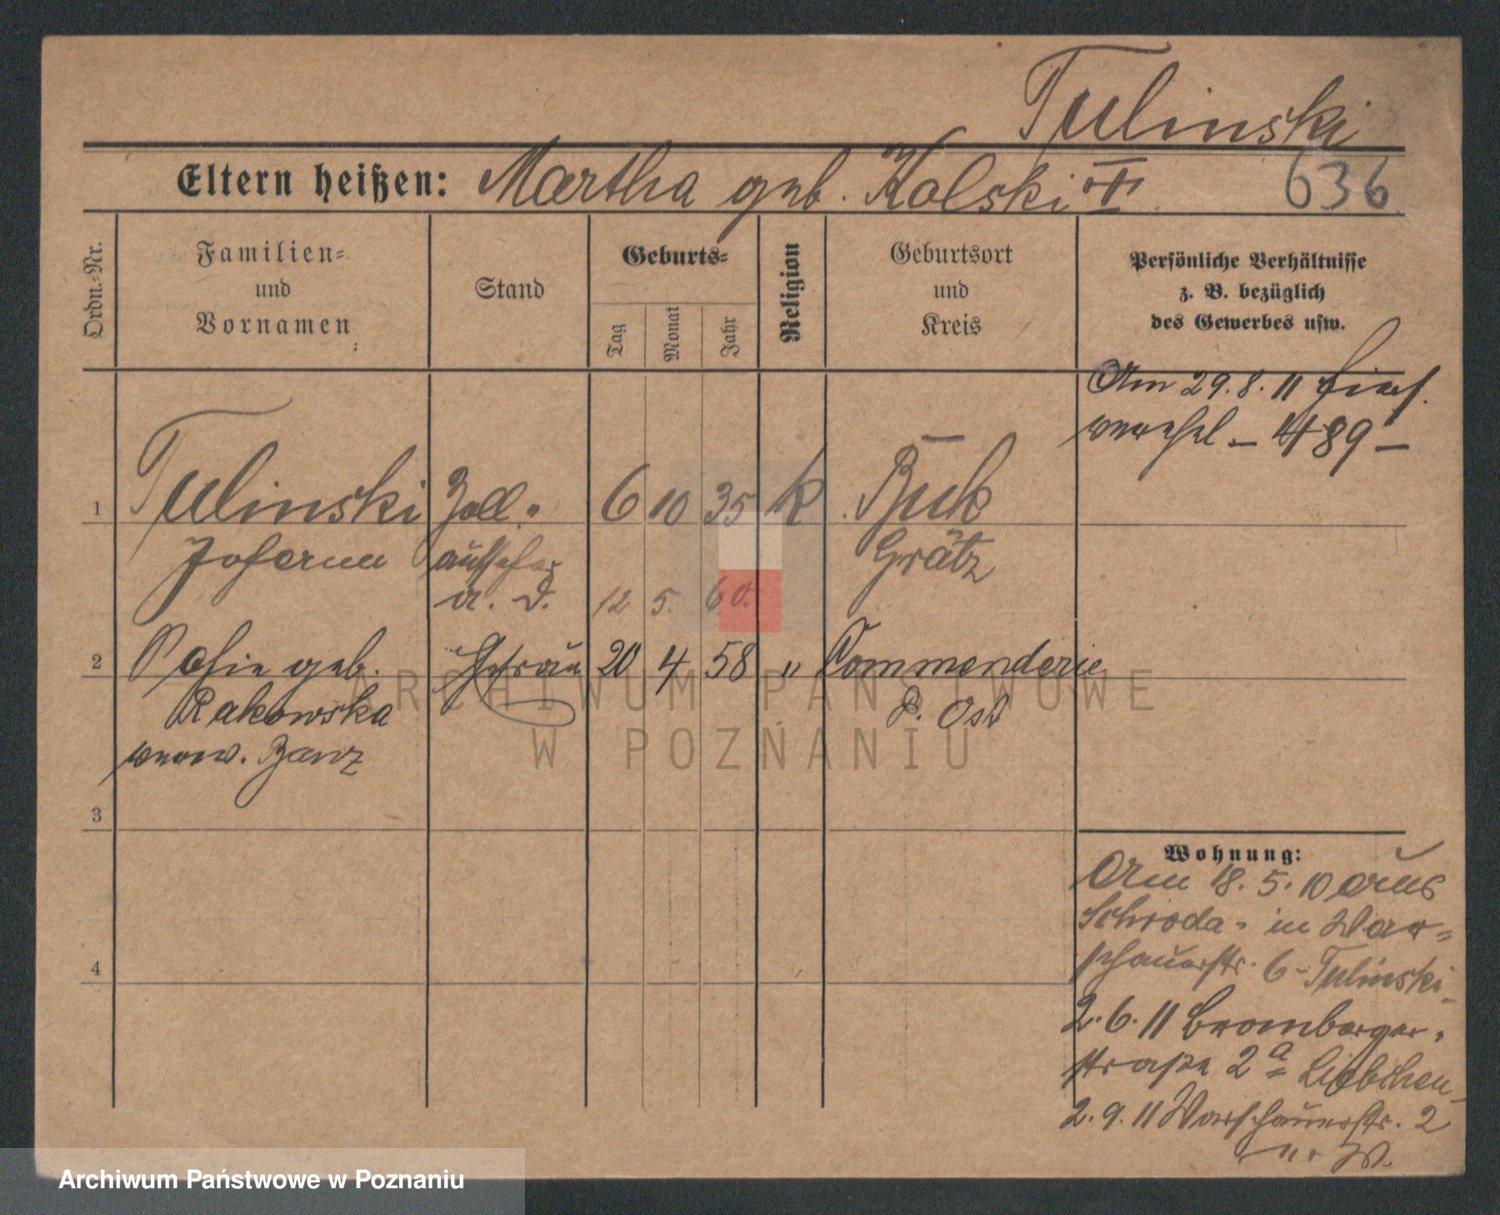 Tulinski
Eltern heißen: Martha geb. Kolski
636
Ordn.-Nr.
Familien-
und
Vornamen
Stand
Geburts-
Tag
Monat
Jahr
Religion
Geburtsort
und
Kreis
Persönliche Verhältnisse
z. B. bezüglich
des Gewerbes usw.
Am 29.8.11
489
1 Tulinski Zoll- 6 10 35 k Buk
Johann aufseher Grätz
a. D. 12 5. 60.
2 Sofie geb. Ehefrau 20 4 58 " Kommenderie
Rakowska P. Ost
verw. Banz
3
4
Wohnung:
Am 18. 5. 10 aus
Schroda - in War-
schauerstr. 6 - Tulinski -
2. 6. 11 Bromberger-
straße 2a Liebchen -
2. 9. 11 Warschauerstr. 2
ARCHIWUM PAŃSTWOWE
W POZNANIU
Archiwum Państwowe w Poznaniu